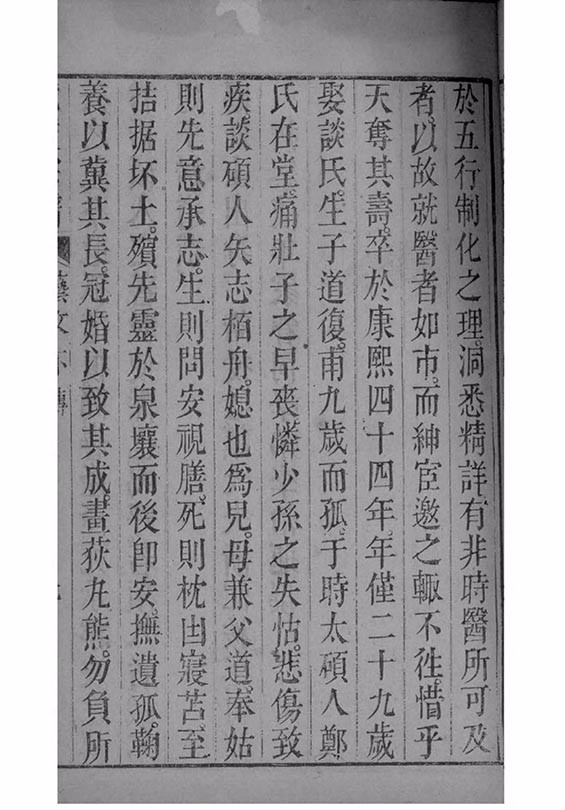 於五行制化之理洞悉精詳有非時醫所可及
者以故就醫者如市而紳宦邀之輙不徃惜乎
天奪其壽卒於康熙四十四年年僅二十九歲
娶談氏生子道復甫九歲而孤于時太碩人鄭
氏在堂痛壯子之早喪憐少孫之失怙悲傷致
疾談碩人矢志栢舟媳也為兒母兼父道奉姑
則先意承志生則問安視膳死則枕凷寢苫至
拮据坏土殯先靈於泉壤而後卽安撫遺孤鞠
養以冀其長冠婚以致其成畫荻丸熊勿負所